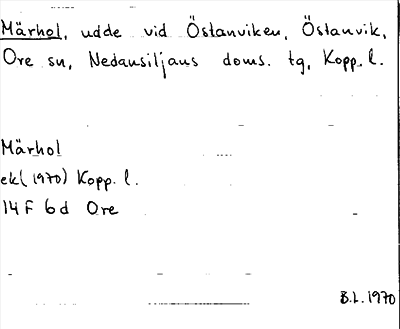 Märhol, udde vid Östanviken, Östanvik,
Ore sn, Nedansiljans doms. tg, Kopp. l.
Märhol
ek (1970) Kopp. l.
14 F 6 d Ore
B.L. 1970